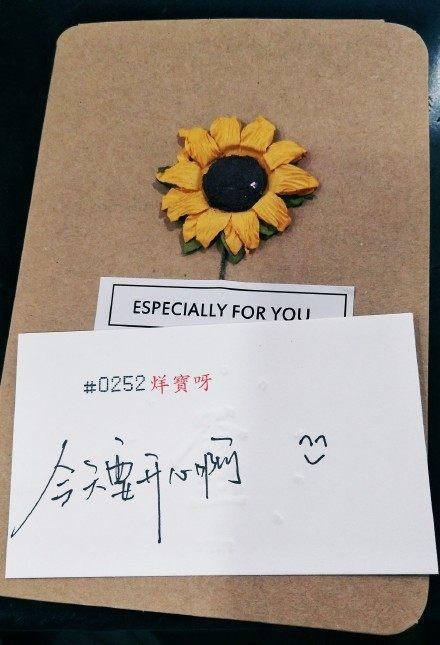 ESPECIALLY FOR YOU
#0252烊寶呀
今天要开心啊